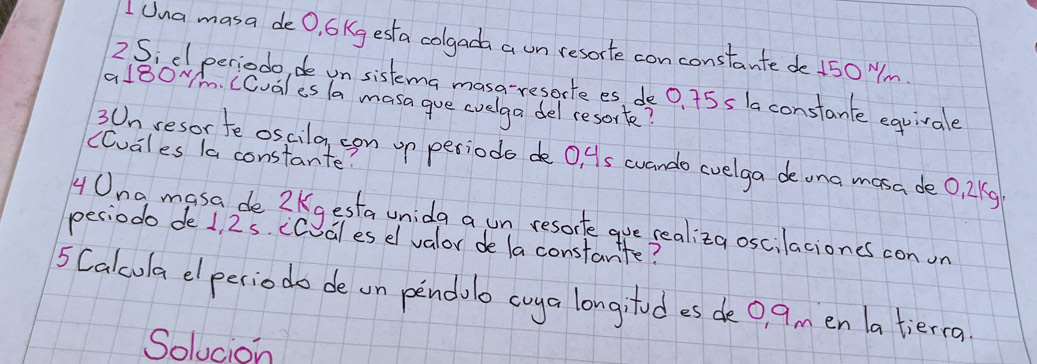 1 Una masa de 0,6Kg esta colgada a un resorte con constante de 150 N/m.
2 Si el periodo, de un sistema masa-resorte es, de 0,75s la constante equivale
a 180 N/m. ¿Cuál es la masa que cuelga del resorte?
3 Un resorte oscila, con un periodo de 0,4s cuando cuelga de una masa de 0,2Kg.
¿Cuál es la constante?
4 Una masa de 2Kg esta unida a un resorte que realiza oscilaciones con un
periodo de 1,2s. ¿Cuál es el valor de la constante?
5 Calcula el periodo de un péndulo cuya longitud es de 0,9m en la tierra.
Solución